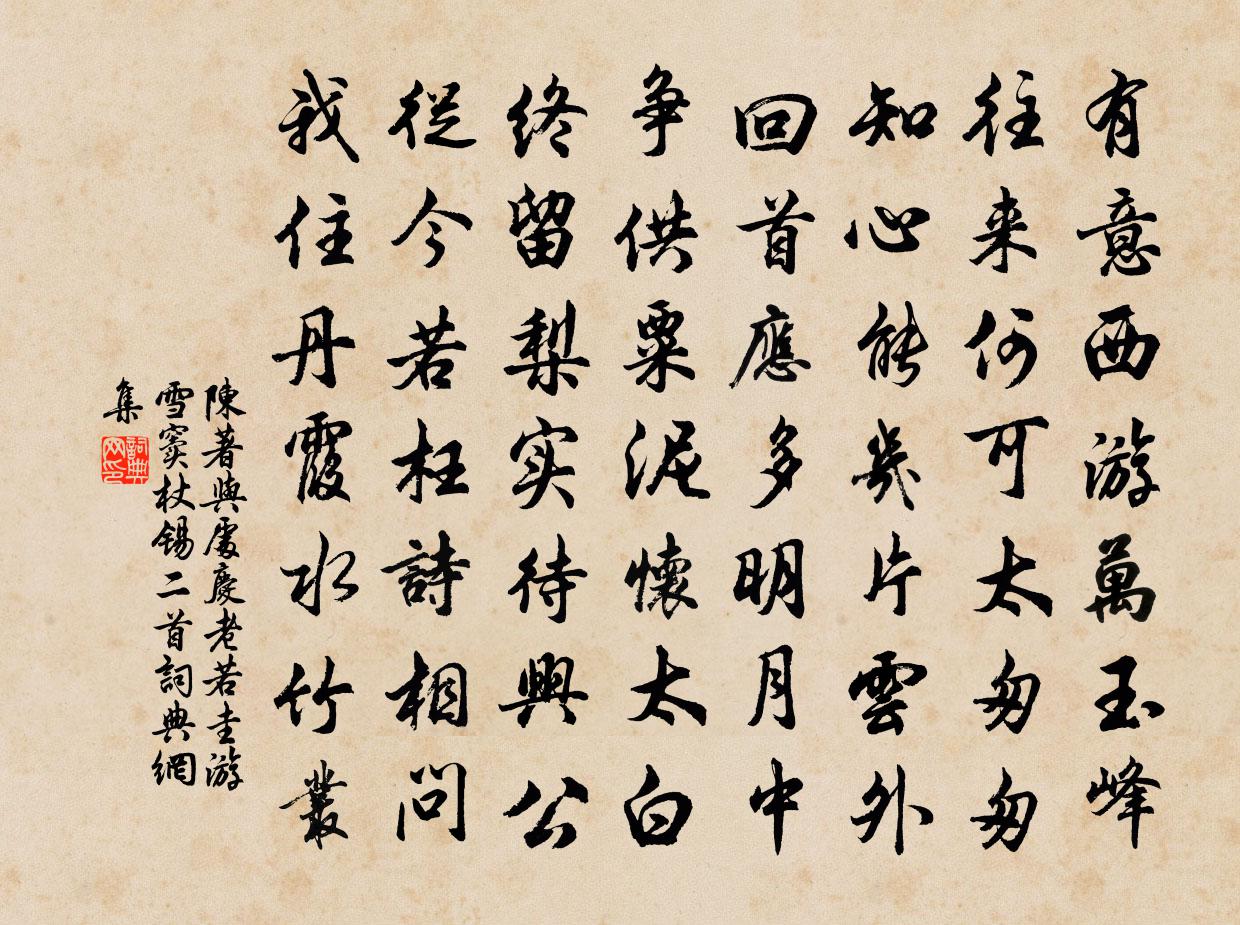 有意西游萬玉峰
往来何可太匆匆
知心能幾片雲外
回首應多明月中
争供粟泥懷太白
終留梨实待興公
從今若枉詩相問
我住丹霞水竹叢
陳著與處慶老若圭游
雪竇杖錫二首詞典網
集
詞典
网印